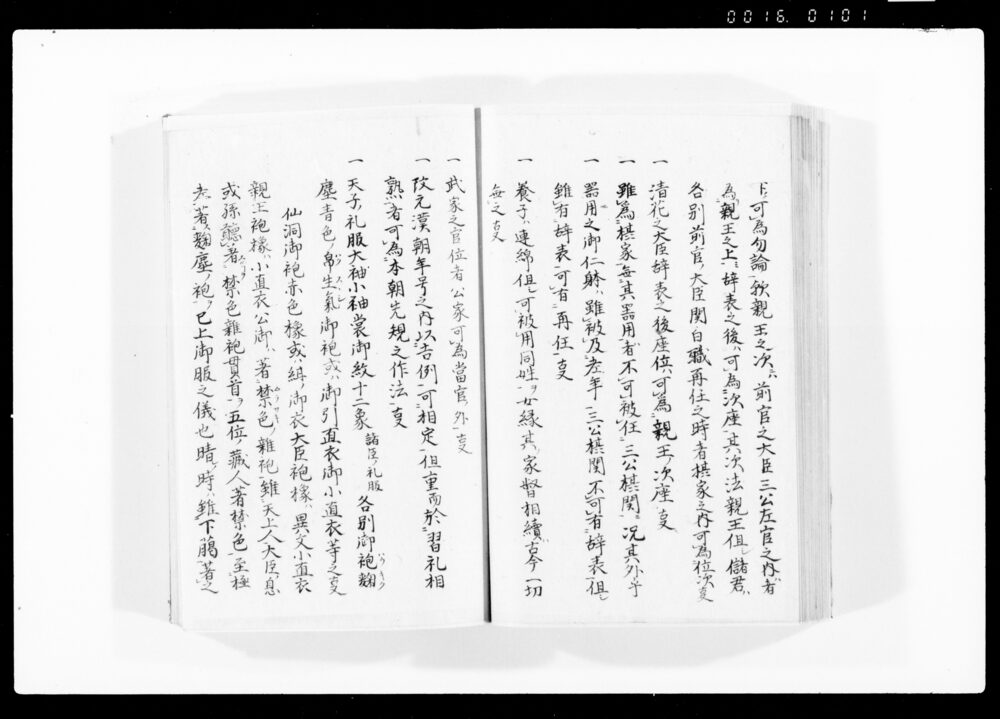 0016. 0101
下可為勿論歟親王之次ニハ前官之大臣三公在官之内者
為親王之上ニ辞表之後ハ可為次座其次法親王但儲君ハ
各別前官ノ大臣関白職再任之時者摂家之内可為位次事
一 清花之大臣辞表之後座位ハ可為親王ノ次座事
一 雖為摂家無其器用者不可被任三公摂関ニ況其外乎
一 器用之御仁躰ハ雖被及老年三公摂関不可有辞表但
雖有辞表可有再任事
一 養子ハ連綿但可被用同姓ヲ女縁其家督相續古今一切
無之事
一 武家之官位者公家可為當官ノ外事
一 改元漢朝年号之内以吉例可相定但重而於習礼相
熟者可為本朝先規之作法事
一 天子ノ礼服大袖小袖裳御紋十二象 諸臣ノ礼服 各別御袍麹
塵青色ノ帛生氣御袍或ハ御引直衣御小直衣等之事
仙洞御袍赤色橡或ハ緋ノ御衣大臣袍橡ハ異文小直衣
親王袍橡ハ小直衣公卿ハ著禁色ノ雜袍雖天上人大臣息
或孫聽著禁色雜袍貫首ノ五位ノ蔵人著禁色至極
老著麹塵ノ袍ヲ已上御服之儀也晴ノ時ハ雖下﨟著之